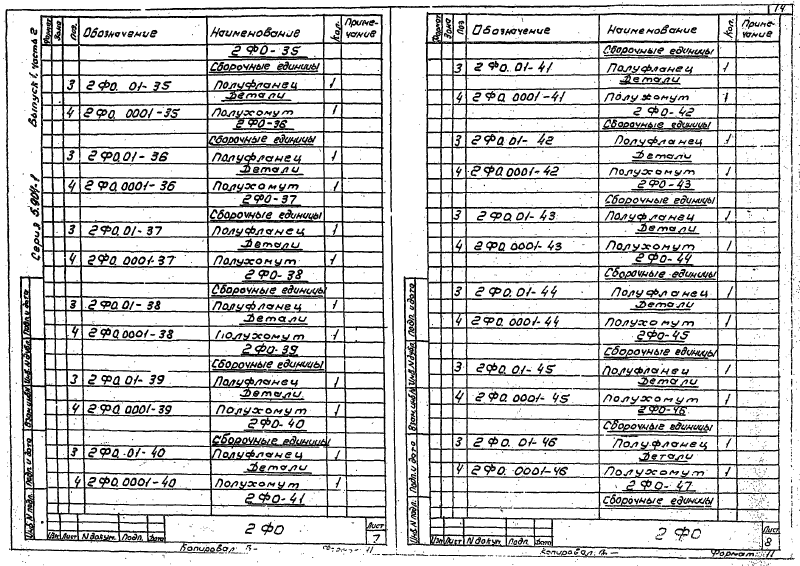 Формат Зона Поз. Обозначение Наименование Кол. Примечание
2ФО-35
Сборочные единицы
3 2ФО. 01-35 Полуфланец 1
Детали
4 2ФО. 0001-35 Полухомут 1
2ФО-36
Сборочные единицы
3 2ФО.01-36 Полуфланец 1
Детали
4 2ФО.0001-36 Полухомут 1
2ФО-37
Сборочные единицы
3 2ФО.01-37 Полуфланец 1
Детали
4 2ФО. 0001-37 Полухомут 1
2ФО-38
Сборочные единицы
3 2ФО.01-38 Полуфланец 1
Детали
4 2ФО.0001-38 Полухомут 1
2ФО-39
Сборочные единицы
3 2ФО.01-39 Полуфланец 1
Детали
4 2ФО. 0001-39 Полухомут 1
2ФО-40
Сборочные единицы
3 2ФО.01-40 Полуфланец 1
Детали
4 2ФО.0001-40 Полухомут 1
2ФО-41
Изм Лист N докум. Подп. Дата
2ФО
Лист
7
Копировал:
Серия 5.904-1 Выпуск 1, часть 2
Инв.N подл. Подп. и дата Взам.инв.N Инв.N дубл. Подп. и дата
14
Формат Зона Поз Обозначение Наименование Кол. Примечание
Сборочные единицы
3 2ФО. 01-41 Полуфланец 1
Детали
4 2ФО. 0001-41 Полухомут 1
2ФО-42
Сборочные единицы
3 2ФО.01-42 Полуфланец 1
Детали
4 2ФО.0001-42 Полухомут 1
2ФО-43
Сборочные единицы
3 2ФО.01-43 Полуфланец 1
Детали
4 2ФО. 0001-43 Полухомут 1
2ФО-44
Сборочные единицы
3 2ФО.01-44 Полуфланец 1
Детали
4 2ФО. 0001-44 Полухомут 1
2ФО-45
Сборочные единицы
3 2ФО.01-45 Полуфланец 1
Детали
4 2ФО. 0001-45 Полухомут 1
2ФО-46
Сборочные единицы
3 2ФО. 01-46 Полуфланец 1
Детали
4 2ФО. 0001-46 Полухомут 1
2ФО-47
Сборочные единицы
Изм Лист N докум. Подп. Дата
2ФО
Лист
8
Копировал: Формат 11
Инв.N подл. Подп. и дата Взам.инв.N Инв.N дубл. Подп. и дата